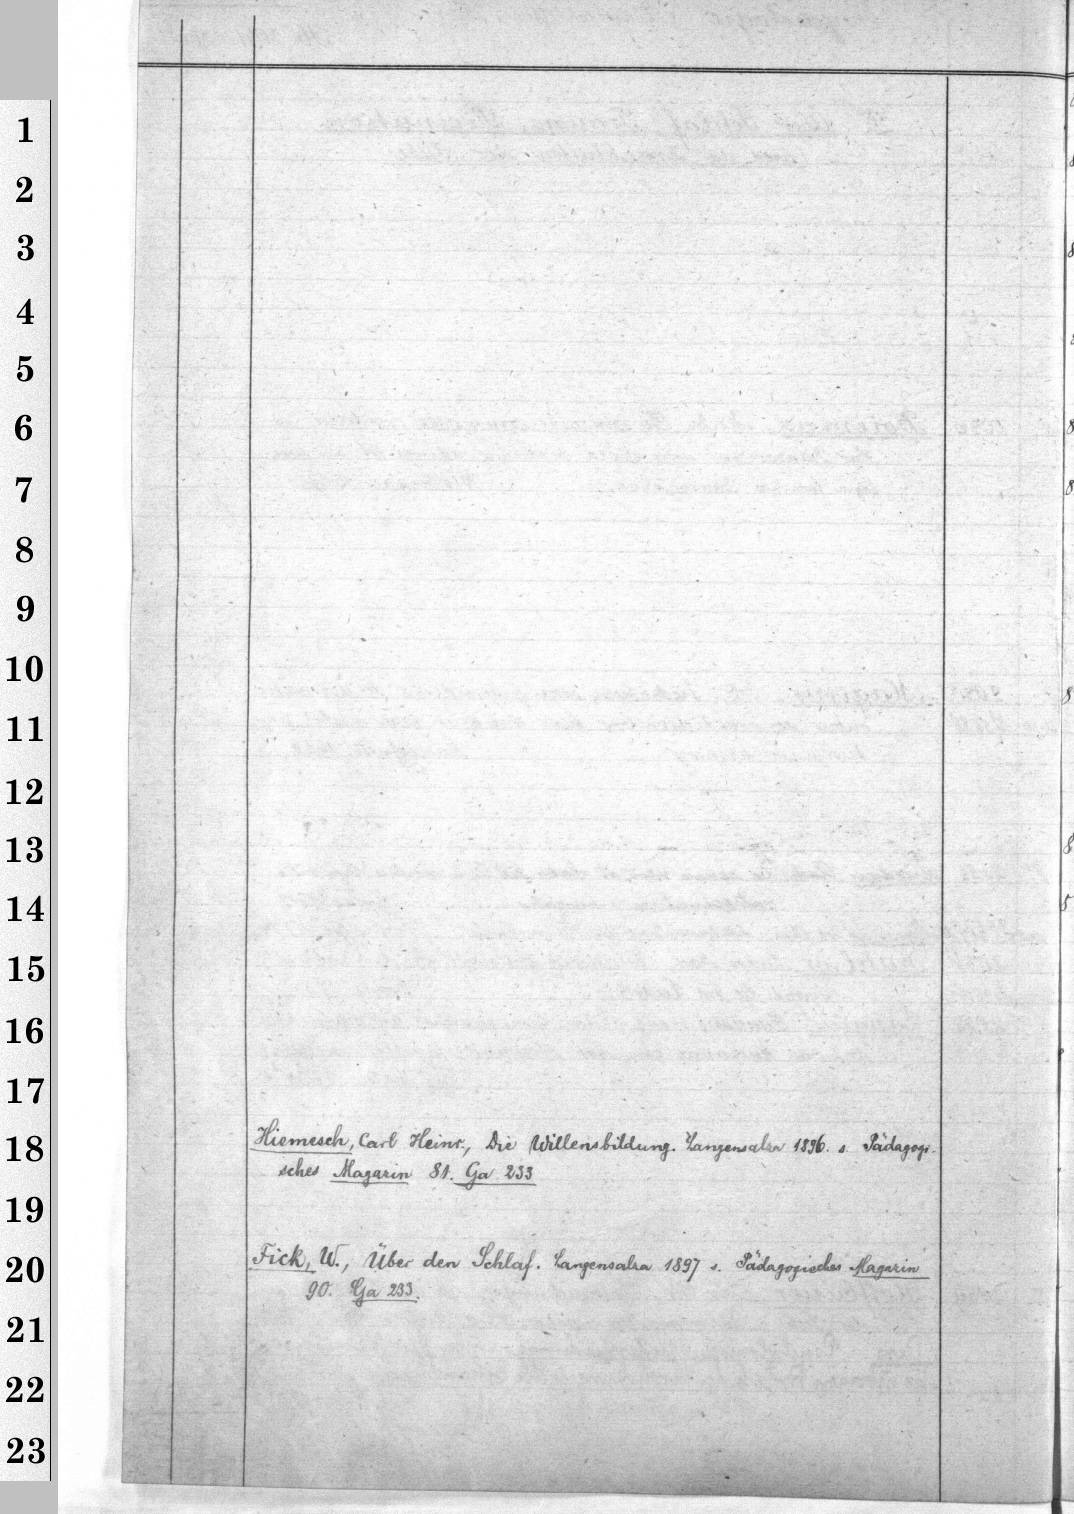 1
2
3
4
5
6
7
8
9
10
11
12
13
14
15
16
17
18
19
20
21
22
23
Hiemesch, Carl Heinr., Die Willensbildung. Langensalza 1896. s. Pädagogi-
sches Magazin 81. Ga 233
Fick, W., Über den Schlaf. Langensalza 1897 s. Pädagogisches Magazin
90. Ga 233.